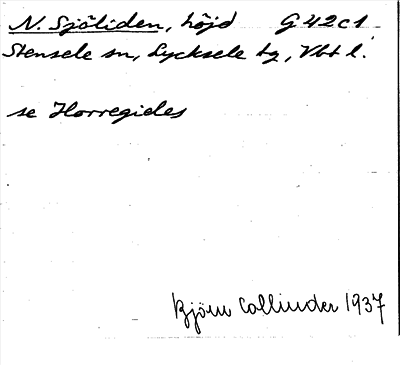 N. Sjöliden, höjd G42c1
Stensele sn, Lycksele tg, Vbt l.
se Harregides
Björn Collinder 1937